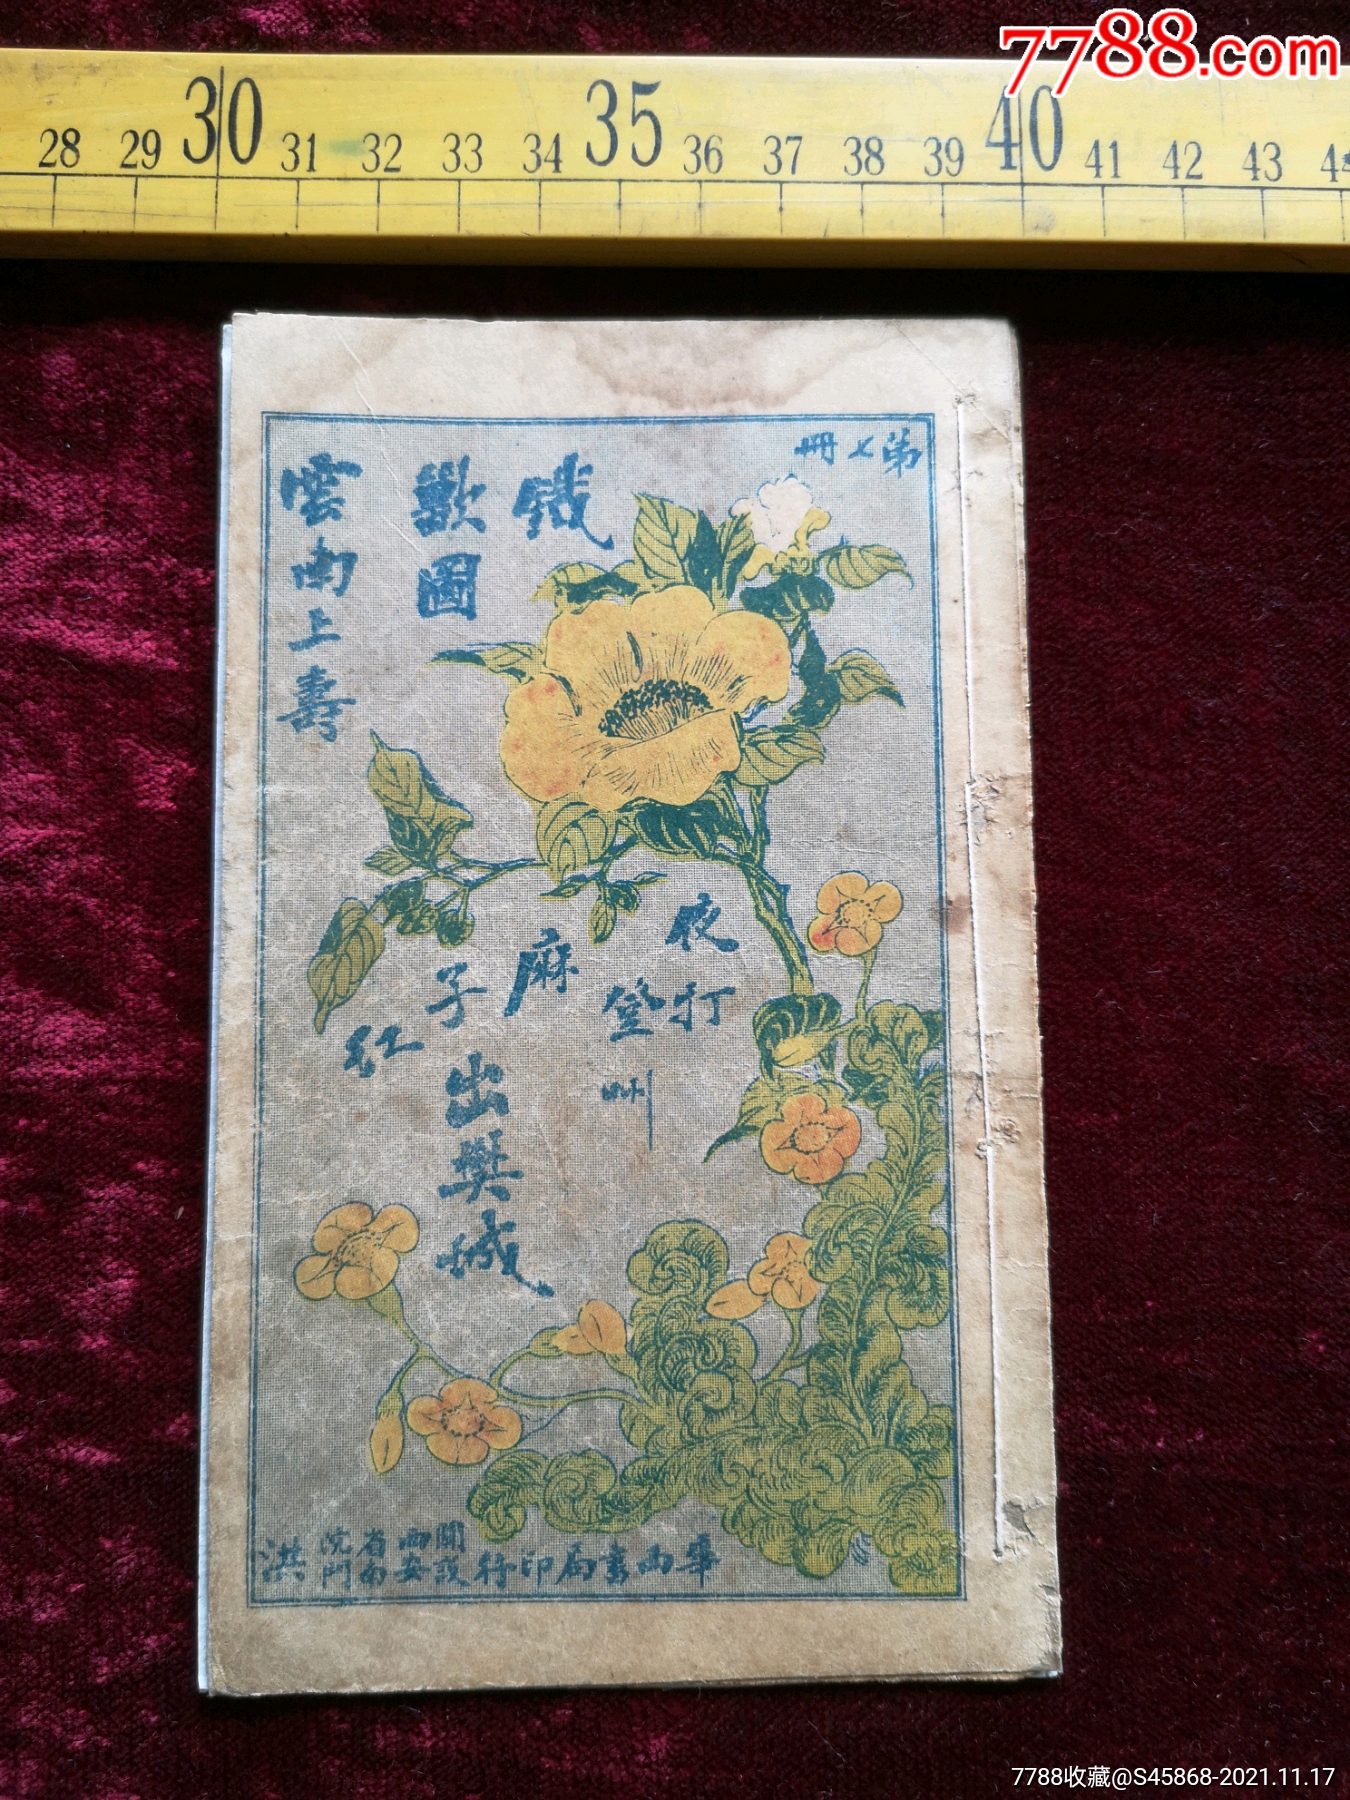 7788.com
28 29 30 31 32 33 34 35 36 37 38 39 40 41 42 43 44
第七册
鐵
獸圖
雲南上壽
夜打
登州
麻
子
紅
出樊城
華山書局印行
開設
西安
省南
院門
洪
7788收藏@S45868-2021.11.17